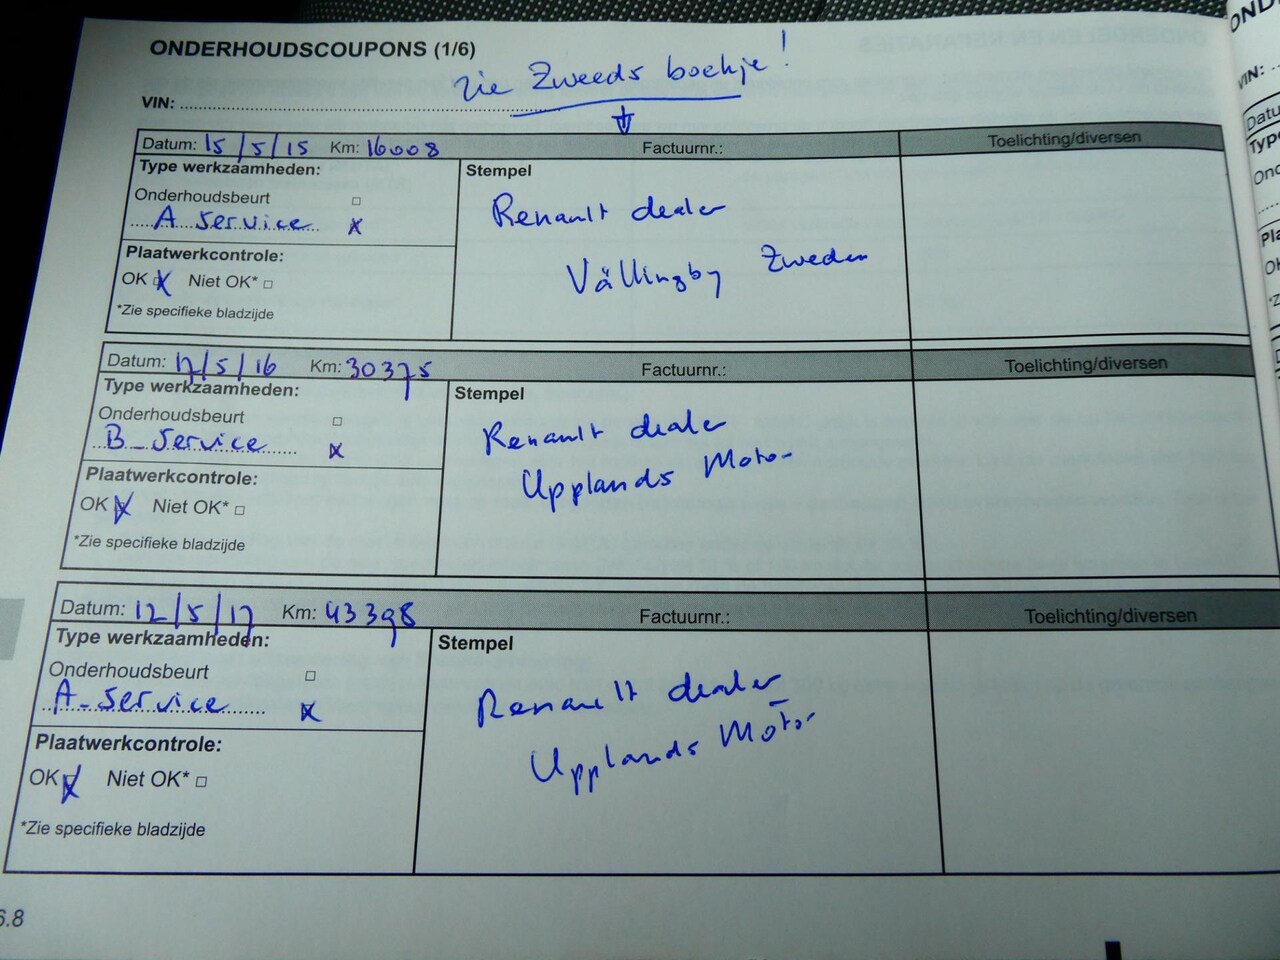 ONDERHOUDSCOUPONS (1/6)
zie Zweeds boekje !
VIN:
Datum: 15/5/15 Km: 16008 Factuurnr.: Toelichting/diversen
Type werkzaamheden: Stempel
Onderhoudsbeurt
A service x
Renault dealer
Vällingby Zweden
Plaatwerkcontrole:
OK x Niet OK*
*Zie specifieke bladzijde
Datum: 17/5/16 Km: 30375 Factuurnr.: Toelichting/diversen
Type werkzaamheden: Stempel
Onderhoudsbeurt
B-service x
Renault dealer
Upplands Motor
Plaatwerkcontrole:
OK x Niet OK*
*Zie specifieke bladzijde
Datum: 12/5/17 Km: 43398 Factuurnr.: Toelichting/diversen
Type werkzaamheden: Stempel
Onderhoudsbeurt
A-service x
Renault dealer
Upplands Motor
Plaatwerkcontrole:
OK x Niet OK*
*Zie specifieke bladzijde
6.8
VIN: